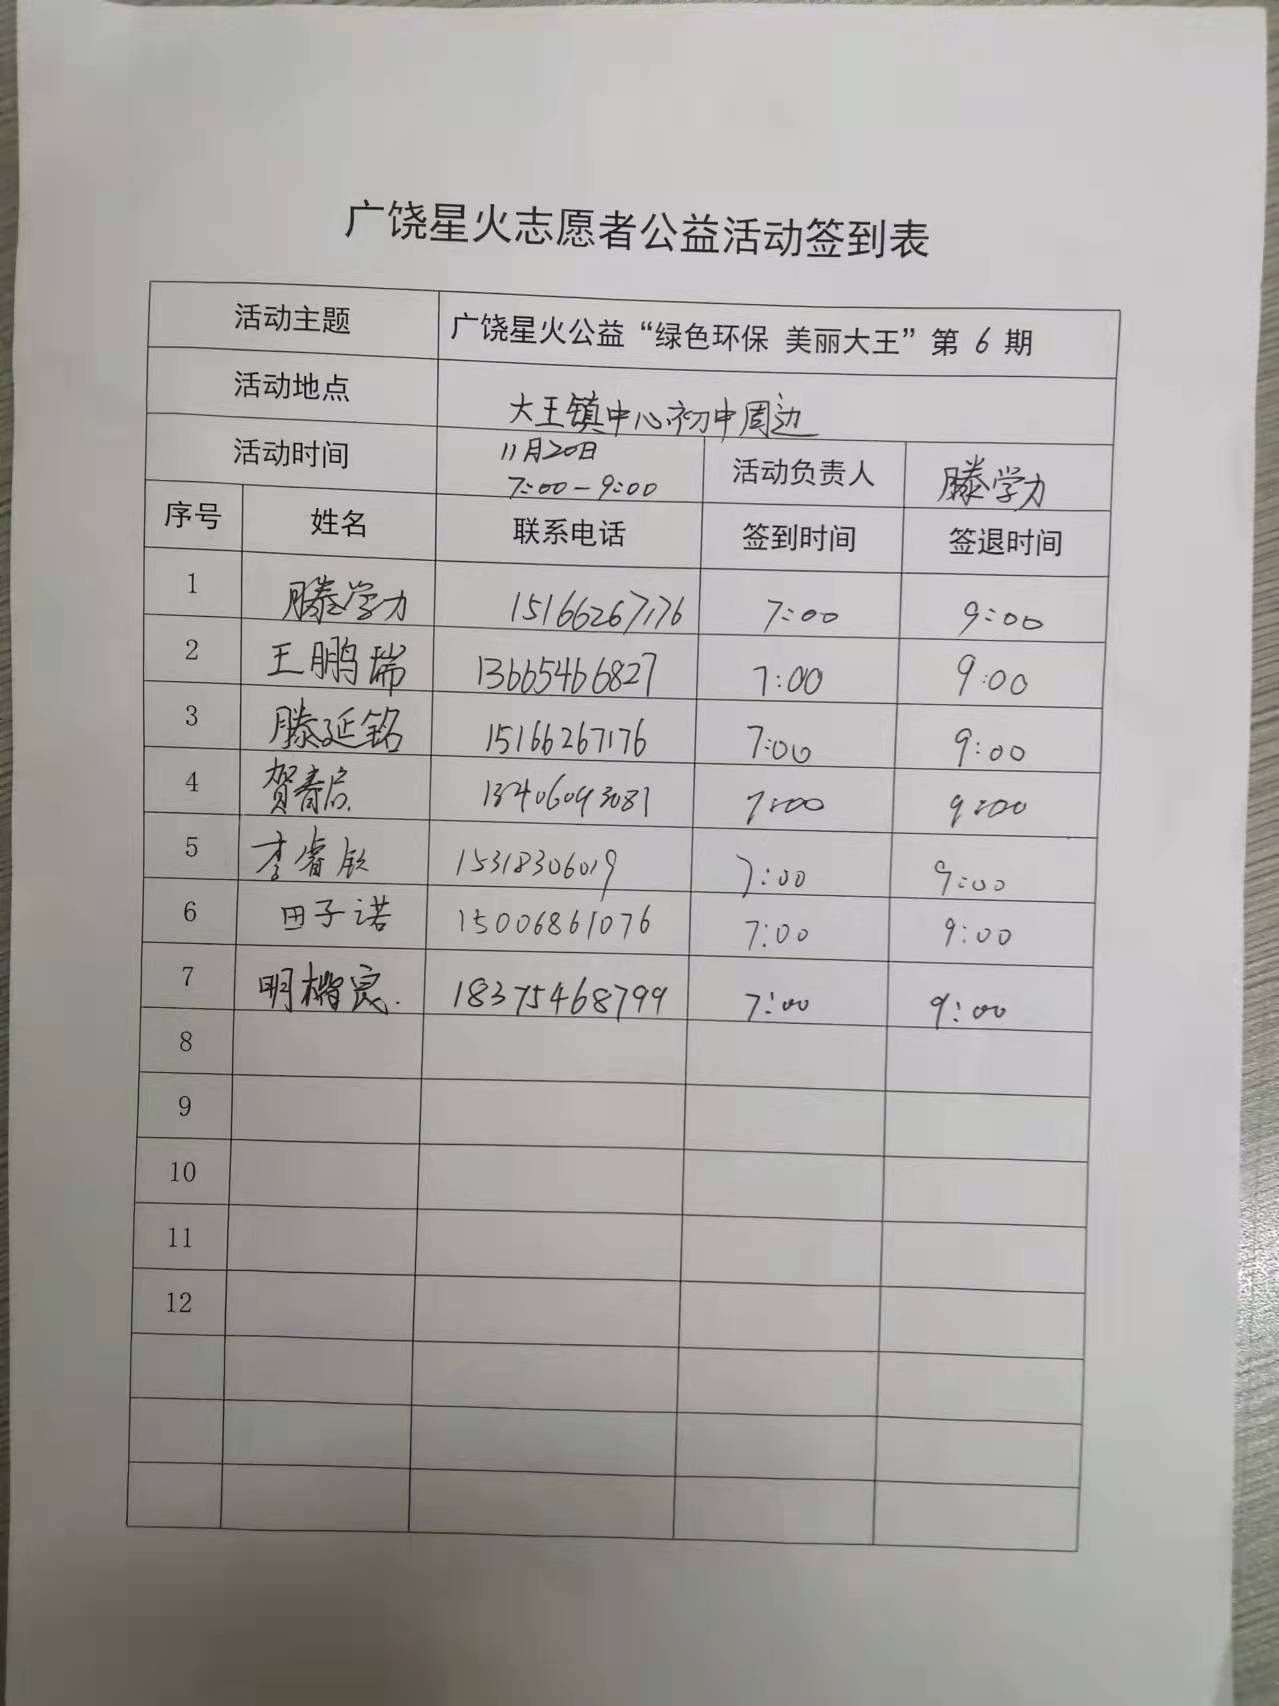 广饶星火志愿者公益活动签到表
活动主题 广饶星火公益“绿色环保 美丽大王”第 6 期
活动地点 大王镇中心初中周边
活动时间 11月20日 7:00-9:00 活动负责人 滕学力
序号 姓名 联系电话 签到时间 签退时间
1 滕学力 15166267176 7:00 9:00
2 王鹏瑞 13665466827 7:00 9:00
3 滕延铭 15166267176 7:00 9:00
4 贺春启 13406093081 7:00 9:00
5 李睿钦 15318306019 7:00 9:00
6 田子诺 15006861076 7:00 9:00
7 明 18375468799 7:00 9:00
8
9
10
11
12